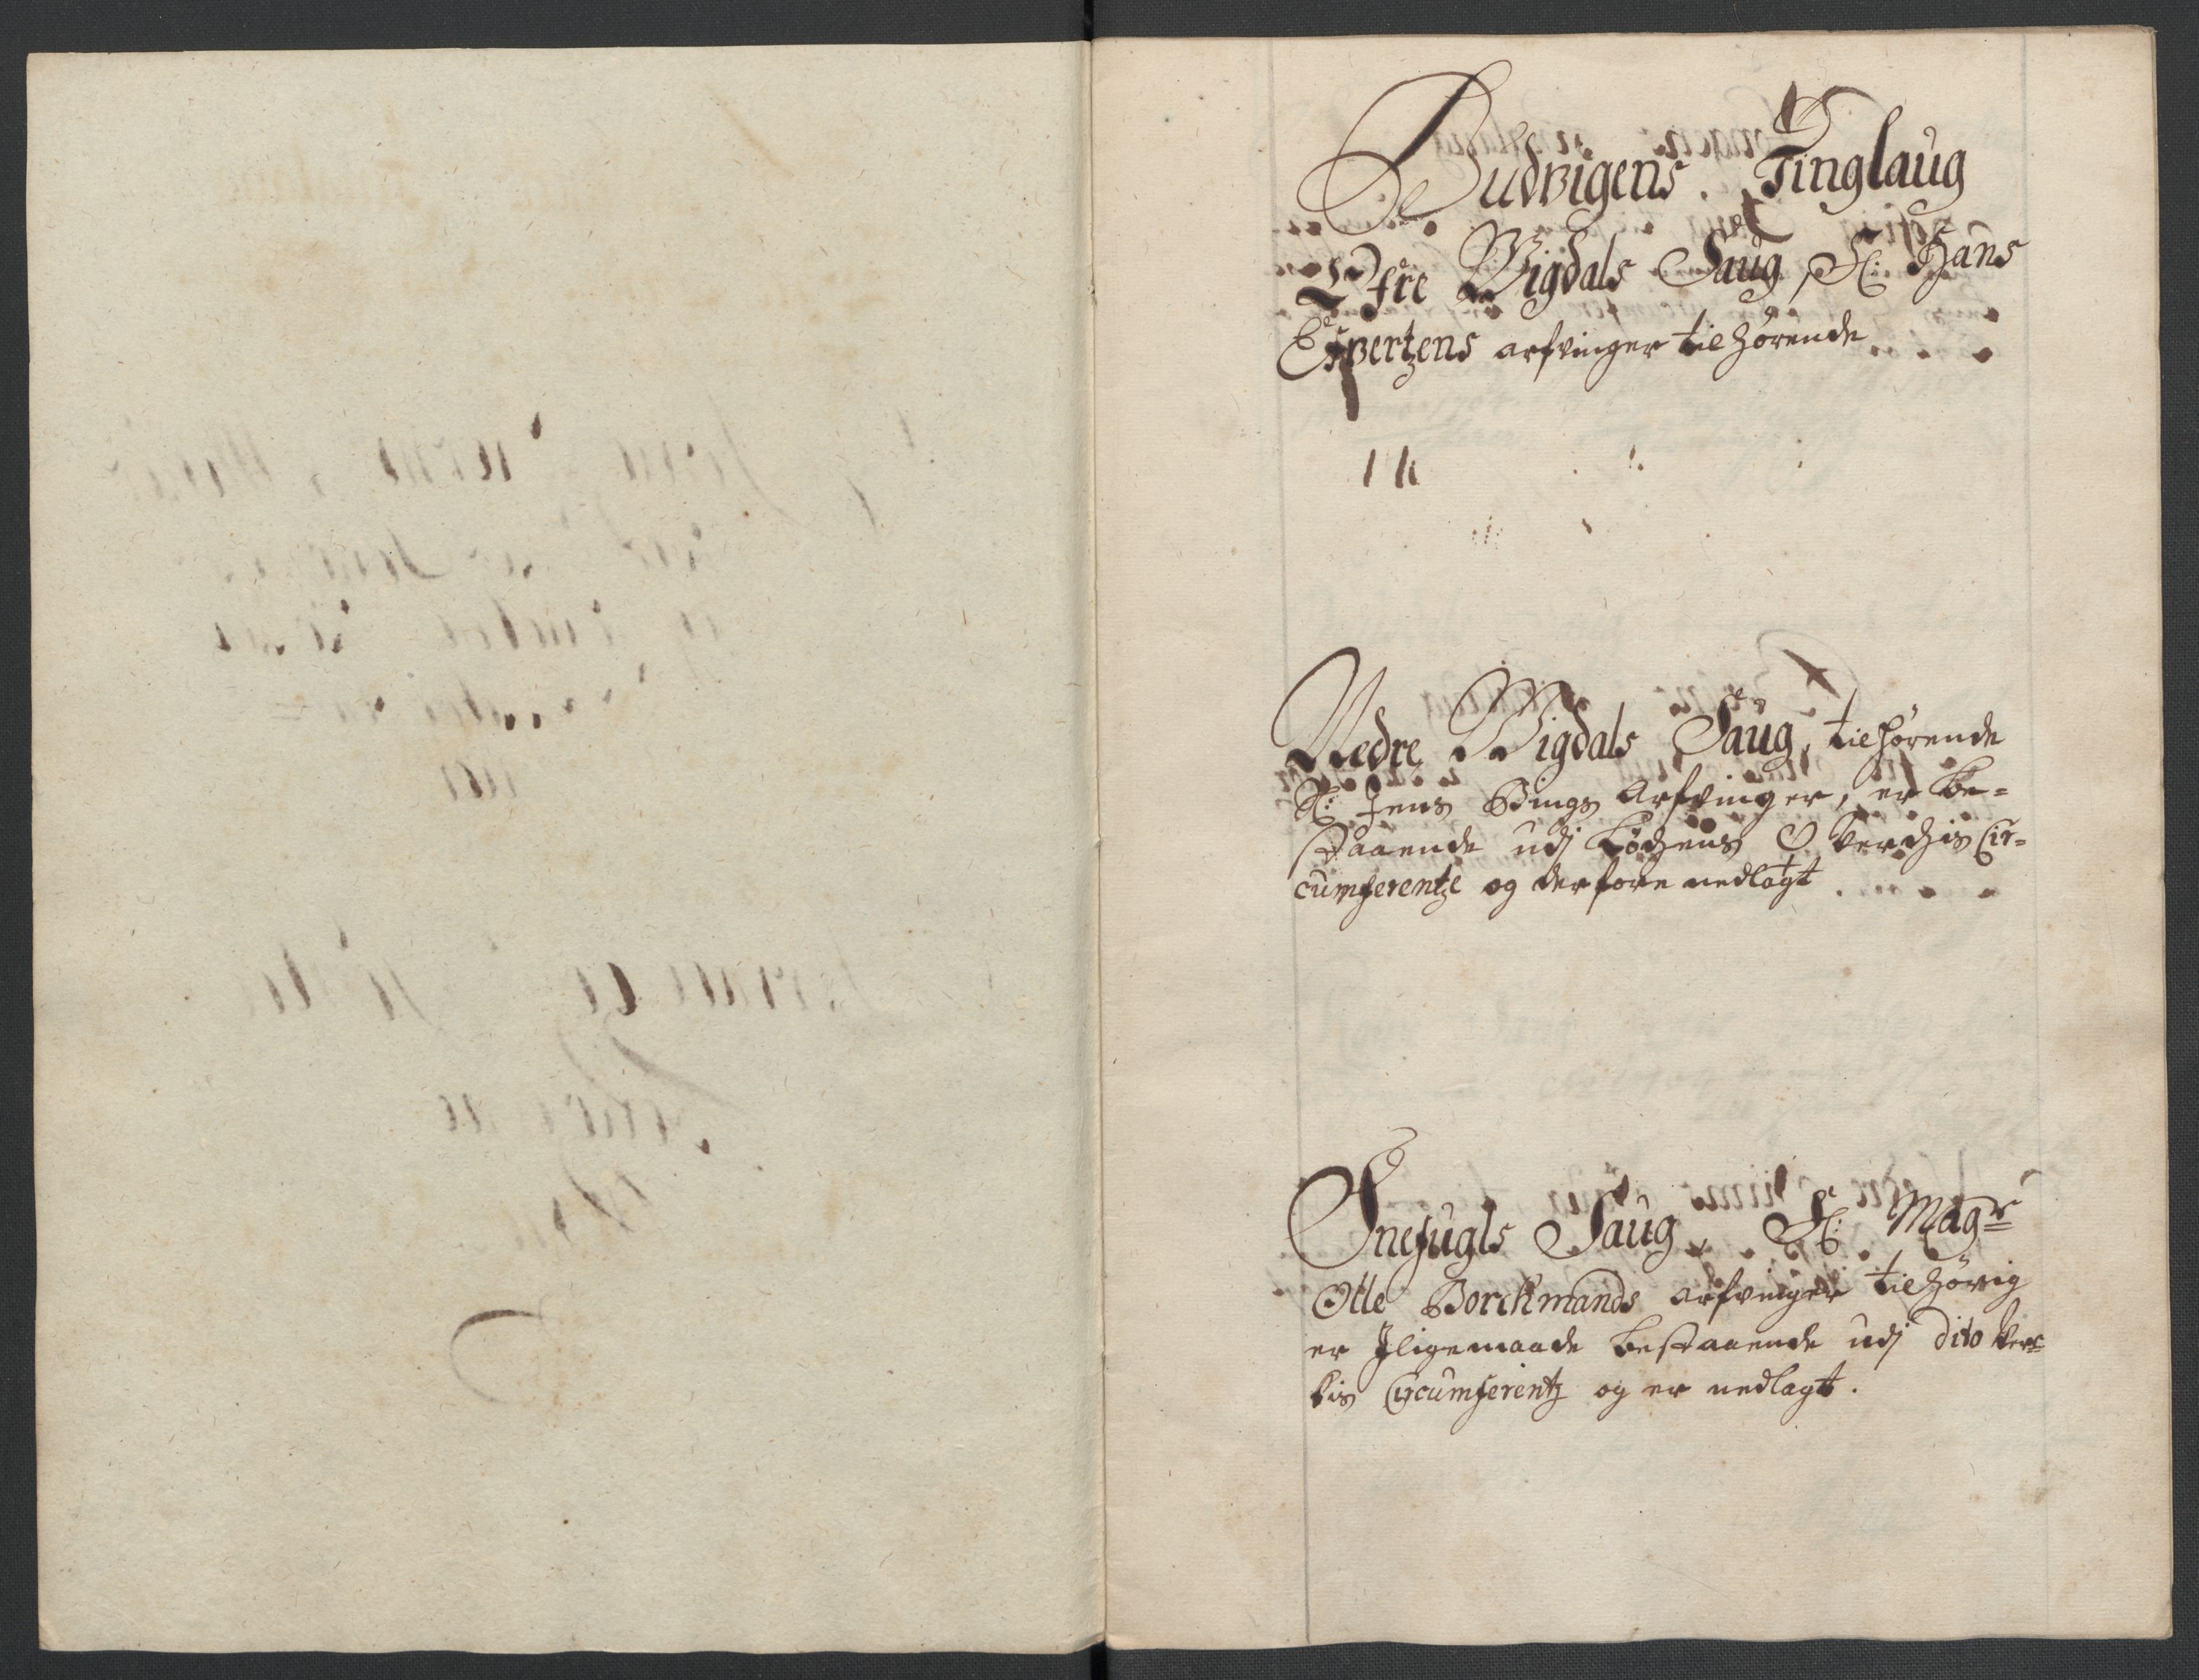 Budvigens Tinglaug
Øfre Wigdals Saug, Sl: Hans
Evertzens arfvinger tilhørende
Nedre Wigdals Saug, tilhørende
Sl: Jens Bings Arfvinger, er be-
staaende udj Kobber Verchis Cir-
cumferentze og derfore nedlagt
Snefugls Saug, Sl: Magr
Otte Borchmands arfvinger tilhørig
er Jligemaade bestaaende udj dito Ver-
kis Circumferentz og er nedlagt.